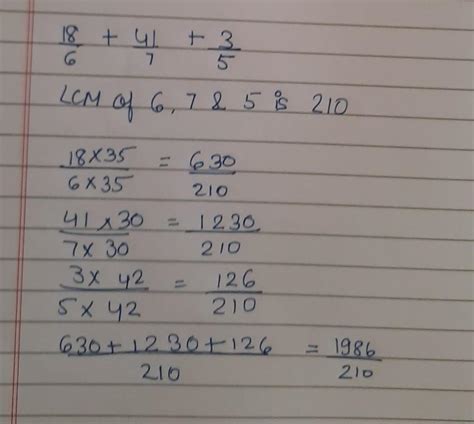 18/6 + 41/7 + 3/5
LCM of 6, 7 & 5 is 210
18×35/6×35 = 630/210
41×30/7×30 = 1230/210
3×42/5×42 = 126/210
630+1230+126/210 = 1986/210